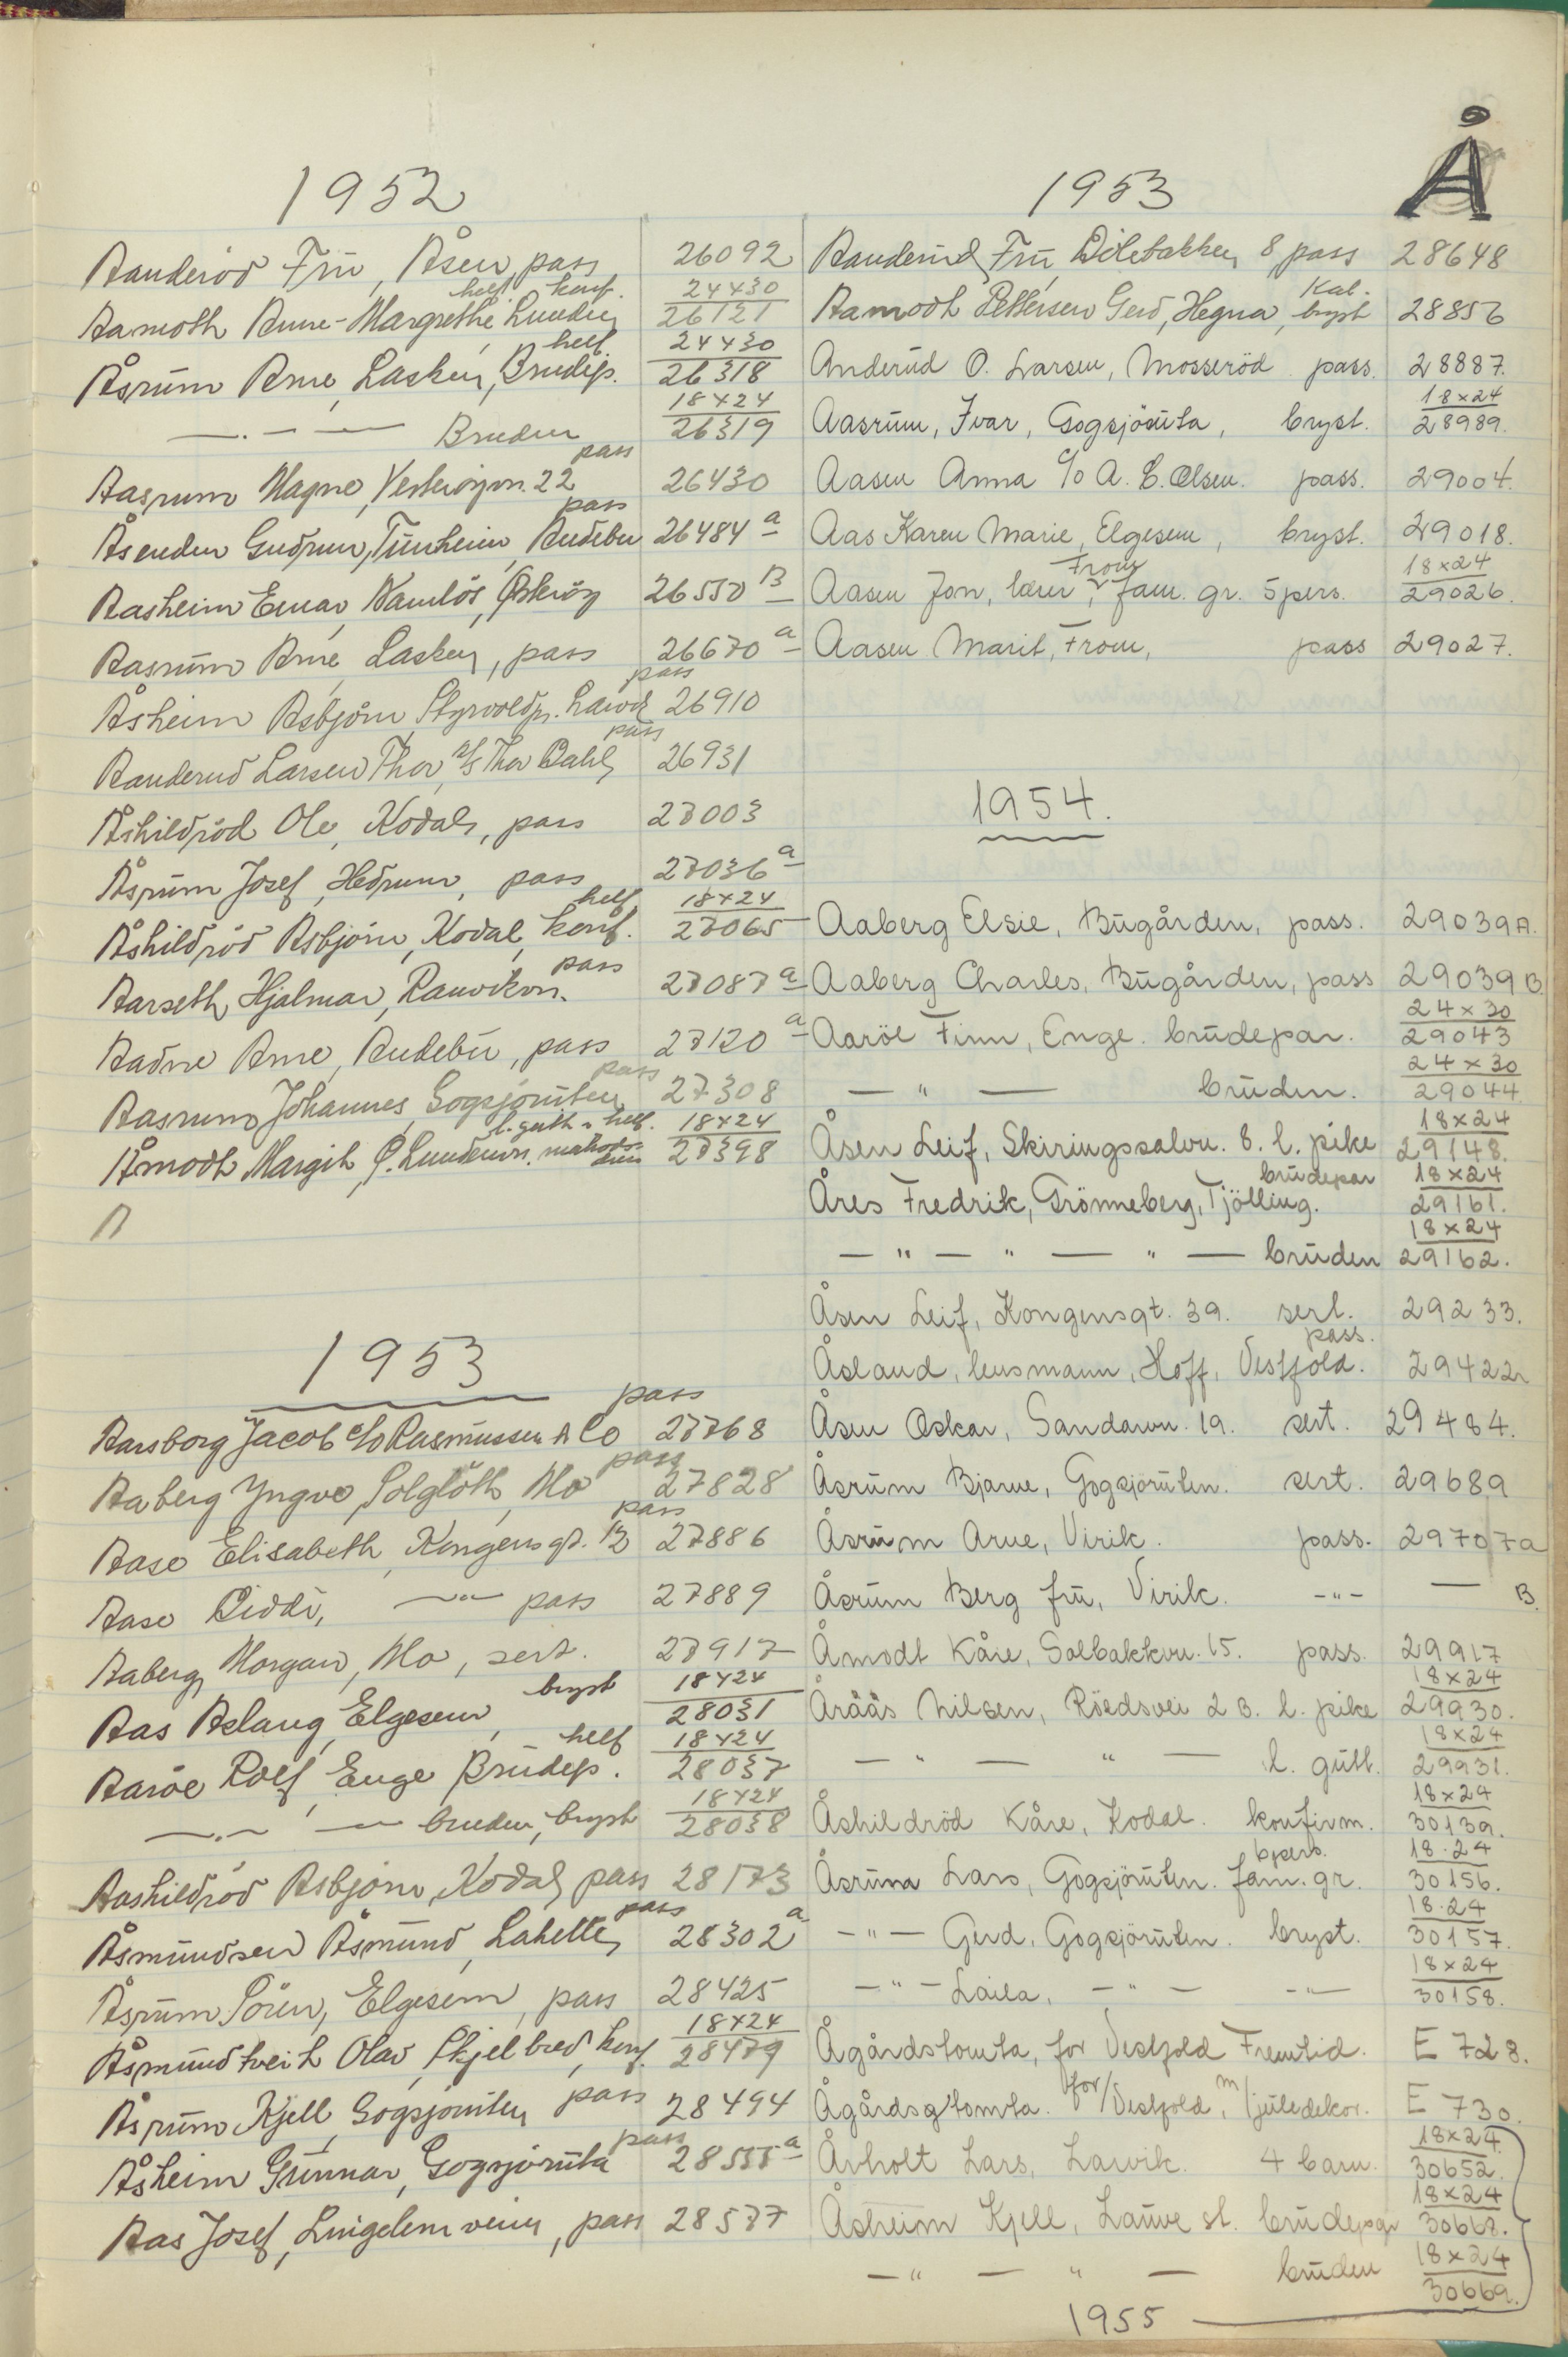 Å
1952
Aanderöd Frü, Åsen, pass 26092
Aamoth Anne-Margrethe, Lunden helf. konf. 24x30 26121
Åsrüm Arne, Lasken, Brudep. helf 24x30 26318
—.— — Bruden 18x24 26319
Aasrum Magne, Vesterøyvn. 22 pass 26430
Åsenden Gudrun, Tünheim Andebu pass 26484 a
Aasheim Einar, Namløs, Østerøy 26550 B
Aasrüm Arne, Lasken, pass 26670 a
Åsheim Asbjørn, Larvik pass 26910
Aanderud Larsen Thor, A/S Thor Dahl, pass 26931
Åshildröd Ole, Kodal, pass 27003
Åsrüm Josef, Hedrum, pass 27036 a
Åshildröd Asbjörn, Kodal, konf. helf 18x24 27065
Aarseth, Hjalmar, Ranvikvn. pass 27087 a
Aadne Arne, Andebü, pass 27120 a
Aasrum Johannes, Gogsjöruten pass 27308
Åmodt Margit, Ø. Lundenvn. l. gutt helf. 18x24 27398
A
1953
Aarsborg Jacob c/o Rasmussen & Co pass 27768
Aaberg Yngve, Solgløtt, Mo pass 27828
Aase Elisabeth, Kongensgt. 12 pass 27886
Aase Diddi, —"— pass 27889
Aaberg, Morgan, Mo, sert. 27917
Aas Aslaug, Elgesem, bryst 18x24 28031
Aaröe Rolf, Enge Brüdep. helf 18x24 28037
—.— — bruden, bryst 18x24 28038
Aashildröd Asbjörn, Kodal, pass 28173
Åsmündsen Åsmünd, Lahelle, pass 28302 a
Åsrüm Sören, Elgesem, pass 28425
Åsmündtveit Olav, Skjelbred, konf. 18x24 28479
Åsrüm Kjell, Gogsjöruten pass 28494
Åsheim Günnar, Gogsjörüta pass 28555 a
Aas Josef, Lingelemveien, pass 28577
1953
Aanderüd, Frü, Dölebakken 8, pass 28648
Aamodt Pettersen Gerd, Hegna, bryst Kab. 28856
Anderüd O. Larsen, Mosseröd pass. 28887.
Aasrüm, Ivar, Gogsjörüta, bryst. 18x24 28989.
Aasen Anna c/o A. C. Olsen. pass. 29004.
Aas Karen Marie, Elgesem, bryst. 29018.
Aasen Jon, lærer, From fam. gr. 5 pers. 18x24 29026.
Aasen Marit, From, pass 29027.
1954.
Aaberg Elsie, Bügården, pass. 29039 A.
Aaberg Charles, Bügården, pass 29039 B.
Aaröe Finn, Enge. brüdepar. 24x30 29043
— " — brüden. 24x30 29044
Åsen Leif, Skiringssalvn. 8. l. pike 18x24 29148.
Åres Fredrik, Grönneberg, Tjölling. brüdepar 18x24 29161.
— " — " — " — brüden 18x24 29162.
Åsen Leif, Kongensgt. 39. sert. 29233.
Åsland, lensmann, Hoff, Vestfold. pass. 29422
Åsen Oskar, Sandarvn. 19. sert. 29484.
Åsrüm Bjarne, Gogsjörüten. sert. 29689
Åsrüm Arne, Virik. pass. 29707a
Åsrüm Berg frü, Virik. -"- — B.
Åmodt Kåre, Solbakkvn. 15. pass. 29917
Åråås Nilsen, Röedsvei 2 B. l. pike 18x24 29930.
— " — " — l. gütt. 18x24 29931.
Åshildröd Kåre, Kodal. konfirm. 18x24 30139.
Åsrüm Lars, Gogsjörüten. fam. gr. 6pers. 18.24 30156.
-"- Gerd, Gogsjörüten. bryst. 18.24 30157.
-"- Laila, -"- -"- 18x24 30158.
Ågårdstomta, for Vestfold Fremtid. E 728.
Ågårdsgtomta. for/Vestfold, m/juledekor. E 730.
Årholt Lars, Larvik. 4 barn. 18x24 30652.
Åsheim Kjell, Lauve st. brüdepar 18x24 30668.
-"- " — brüden 18x24 30669.
1955